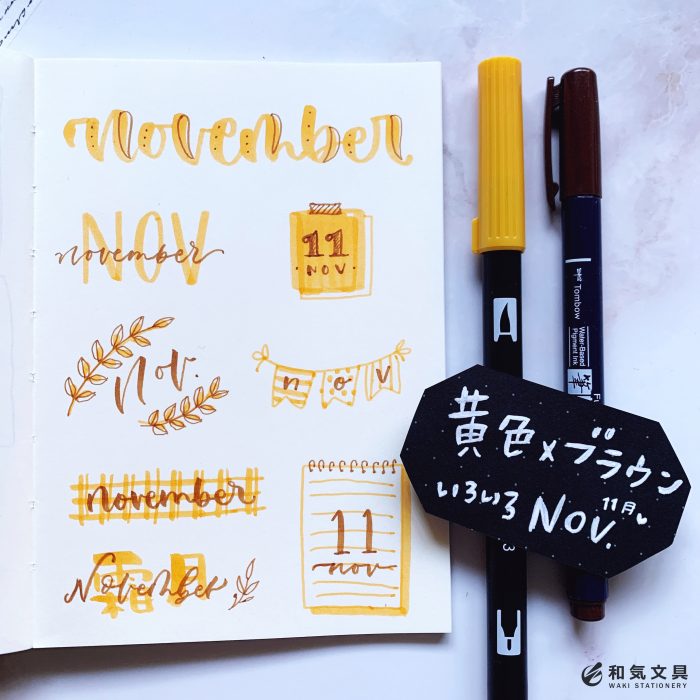 november
NOV
november
11
NOV.
Nov.
nov
november
11
nov
霜月
November
Tombow
Water-Based
Pigment Ink
筆
黄色×ブラウン
いろいろ NOV.
11月
和気文具
WAKI STATIONERY